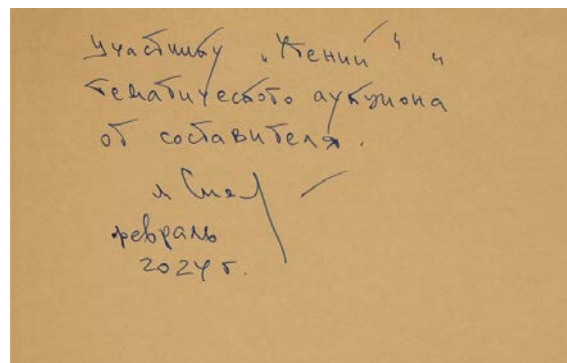 участнику „Чтений“ и
тематического аукциона
от составителя.
февраль
2024 г.